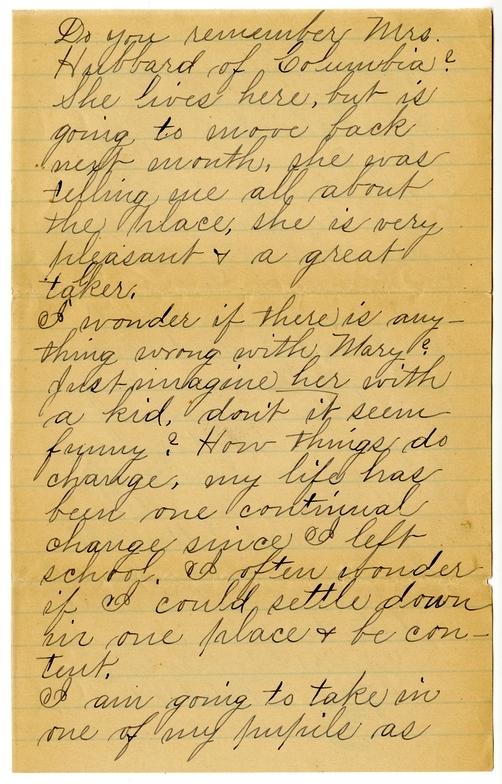 Do you remember Mrs.
Hubbard of Columbia?
She lives here, but is
going to move back
next month, she was
telling me all about
the place, she is very
pleasant & a great
taker.
I wonder if there is any-
thing wrong with Mary?
Just imagine her with
a kid, don't it seem
funny? How things do
change, my life has
been one continual
change since I left
school. I often wonder
if I could settle down
in one place & be con-
tent.
I am going to take in
one of my pupils as